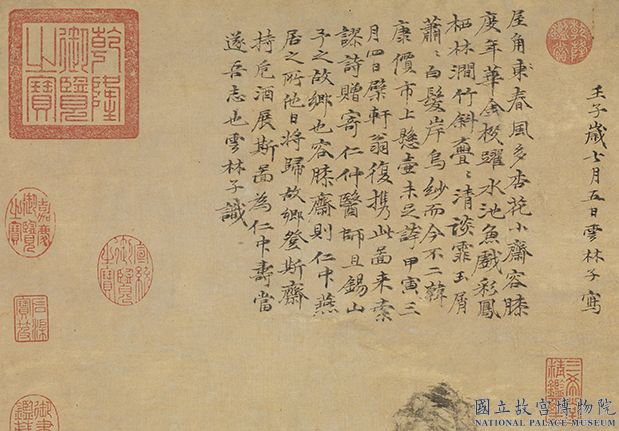 壬子歲七月五日雲林子寫
屋角東春風多杏花小齋容膝
度年華金梭躍水池魚戲彩鳳
栖林澗竹斜亹〻清談霏玉屑
蕭〻白髮岸烏紗而今不二韓
康價市上懸壺未足誇甲寅三
月四日檗軒翁復携此啚来索
謬詩贈寄仁仲醫師且錫山
予之故鄉也容膝齋則仁仲燕
居之所他日將歸故鄉登斯齋
持卮酒展斯啚為仁中壽當
遂吾志也雲林子識
乾隆御覽之寶
乾隆鑑賞
嘉慶御覽之寶
宣統御覽之寶
石渠寶笈
三希堂精鑑
御書
鑑藏
國立故宮博物院
NATIONAL PALACE MUSEUM